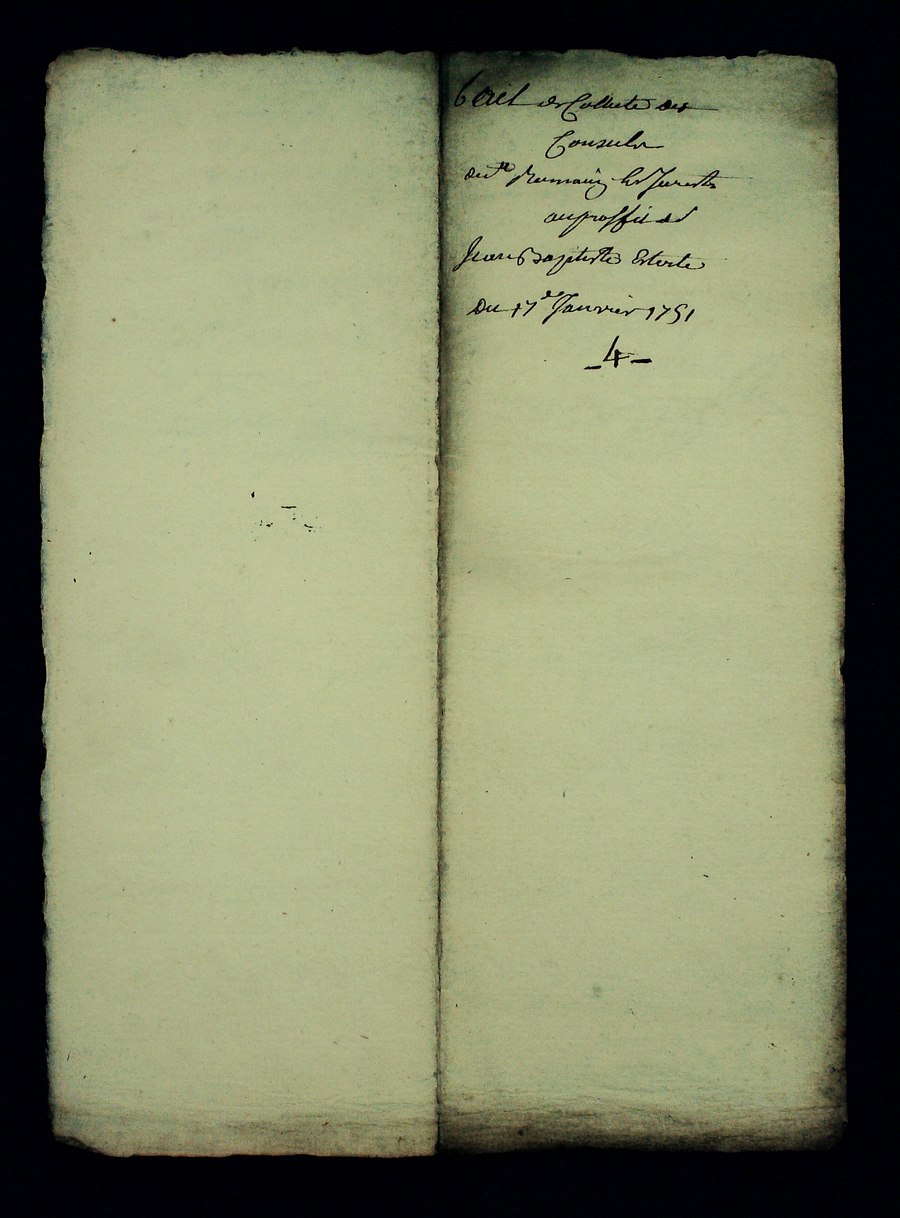 Bail de Collecte des
Consuls
de St Romain les
au proffit de
Jean Baptiste
du 17e Janvier 1751
-4-